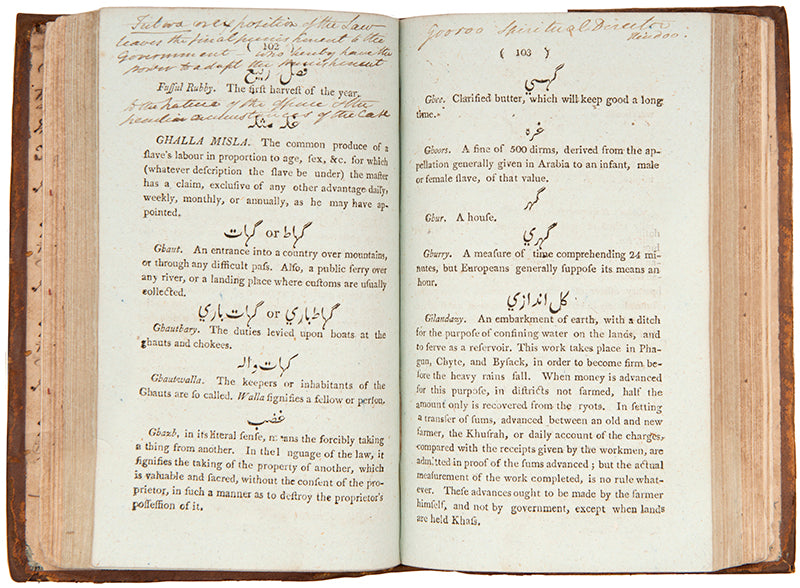 Futwa or exposition of the Law
leaves the final punishment to the
( 102 )
Government who thereby have the
power to adapt the punishment
فصل ربيع
Fuſſul Rubby. The firſt harveſt of the year.
to the nature of the offence & the
peculiar circumstances of the Case
غله مثله
GHALLA MISLA. The common produce of a
ſlave's labour in proportion to age, ſex, &c. for which
(whatever deſcription the ſlave be under) the maſter
has a claim, excluſive of any other advantage daily,
weekly, monthly, or annually, as he may have ap-
pointed.
گهات or گهاط
Ghaut. An entrance into a country over mountains,
or through any difficult paſs. Alſo, a public ferry over
any river, or a landing place where cuſtoms are uſually
collected.
گهات باري or گهاط باري
Ghautbary. The duties levied upon boats at the
ghauts and chokees.
كهات واله
Ghautwalla. The keepers or inhabitants of the
Ghauts are ſo called. Walla ſignifies a fellow or perſon.
غضب
Ghazb, in its literal ſenſe, means the forcibly taking
a thing from another. In the language of the law, it
ſignifies the taking of the property of another, which
is valuable and ſacred, without the conſent of the pro-
prietor, in ſuch a manner as to deſtroy the proprietor's
poſſeſſion of it.
Gooroo Spiritual Director
Hindoo.
( 103 )
گهي
Ghee. Clarified butter, which will keep good a long
time.
غره
Ghoors. A fine of 500 dirms, derived from the ap-
pellation generally given in Arabia to an infant, male
or female ſlave, of that value.
گهر
Ghur. A houſe.
گهري
Ghurry. A meaſure of time comprehending 24 mi-
nutes, but Europeans generally ſuppoſe its means an
hour.
كل اندازي
Gilandazy. An embarkment of earth, with a ditch
for the purpoſe of confining water on the lands, and
to ſerve as a reſervoir. This work takes place in Pha-
gun, Chyte, and Byſack, in order to become firm be-
fore the heavy rains fall. When money is advanced
for this purpoſe, in diſtricts not farmed, half the
amount only is recovered from the ryots. In ſetting
a transfer of ſums, advanced between an old and new
farmer, the Khuſrah, or daily account of the charges,
compared with the receipts given by the workmen, are
admitted in proof of the ſums advanced; but the actual
meaſurement of the work completed, is no rule what-
ever. Theſe advances ought to be made by the farmer
himſelf, and not by government, except when lands
are held Khaſs.